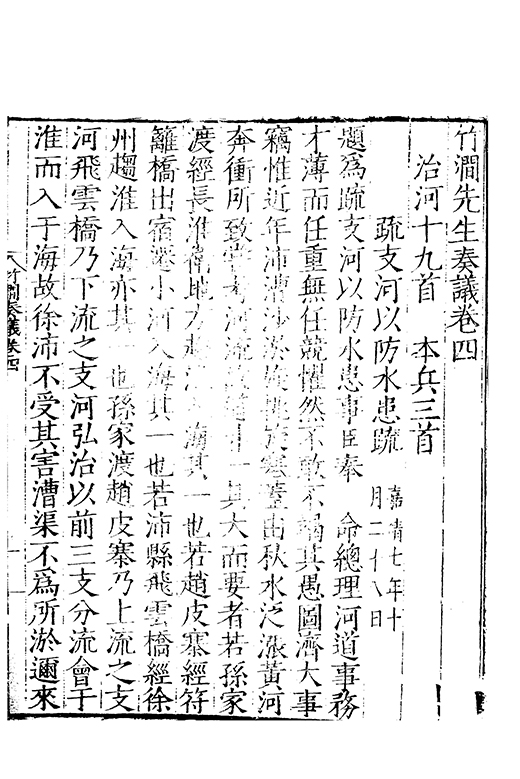 竹澗先生奏議卷四
治河十九首 本兵三首
疏支河以防水患疏 嘉靖七年十
月二十八日
題爲疏支河以防水患事臣奉 命總理河道事務
才薄而任重無任兢懼然不敢不竭其愚圖濟大事
竊惟近年沛漕沙淤旋挑旋塞蓋由秋水泛漲黃河
奔衝所致嘗考河流故道 其大而要者若孫家
渡經長淮衛地方 海其一也若趙皮寨經符
離橋出宿遷小河入海其一也若沛縣飛雲橋經徐
州趨淮入海亦其一也孫家渡趙皮寨乃上流之支
河飛雲橋乃下流之支河弘治以前三支分流會于
淮而入于海故徐沛不受其害漕渠不爲所淤邇來
竹澗奏議卷四
一